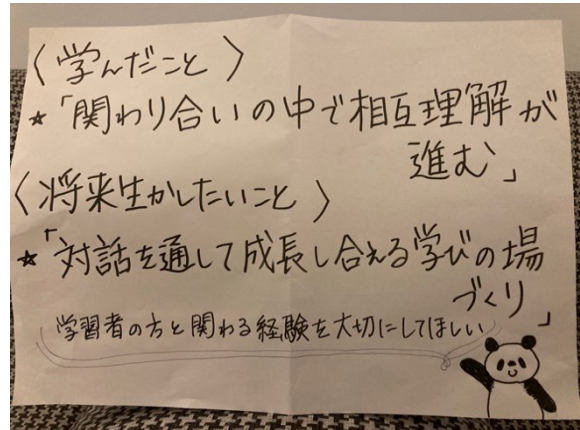 〈学んだこと〉
★「関わり合いの中で相互理解が
進む」
〈将来生かしたいこと〉
★「対話を通して成長し合える学びの場
づくり」
学習者の方と関わる経験を大切にしてほしい